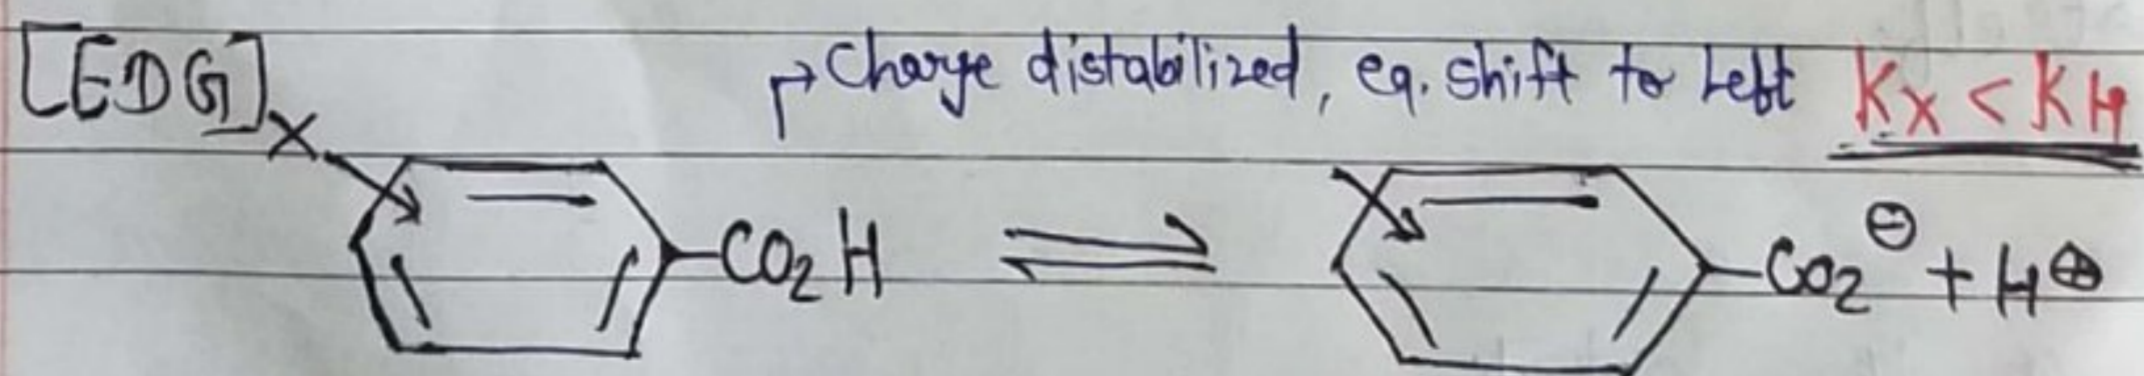 [EDG] ↱Charge distabilized, eq. shift to Left Kx < KH
X
CO₂H ⇌ CO₂⊖ + H⊕